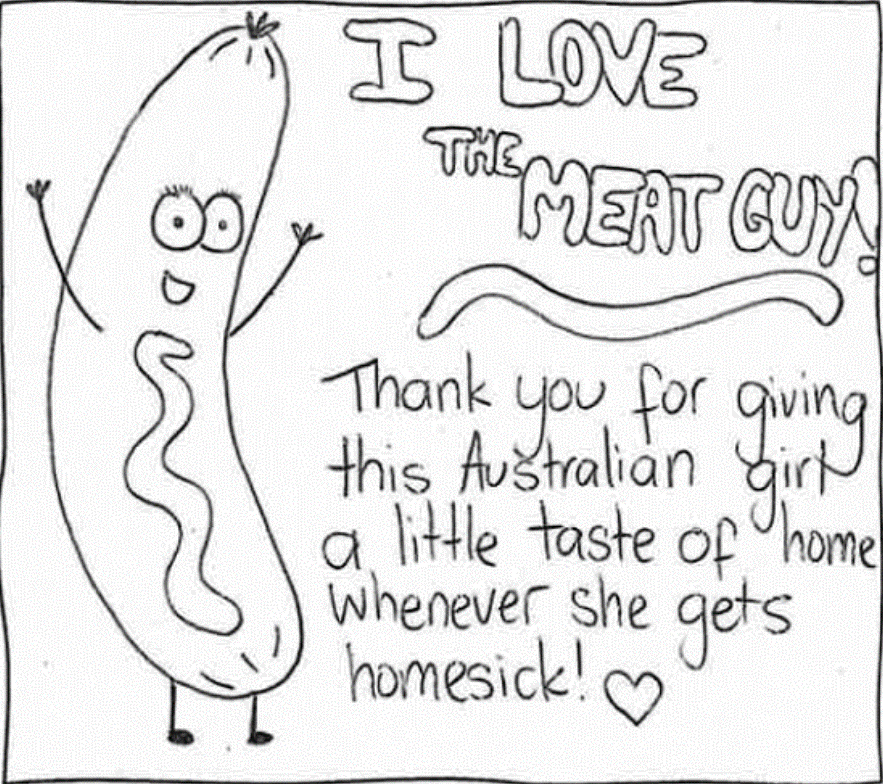 I LOVE
THE MEAT GUY!
Thank you for giving
this Australian girl
a little taste of home
whenever she gets
homesick!